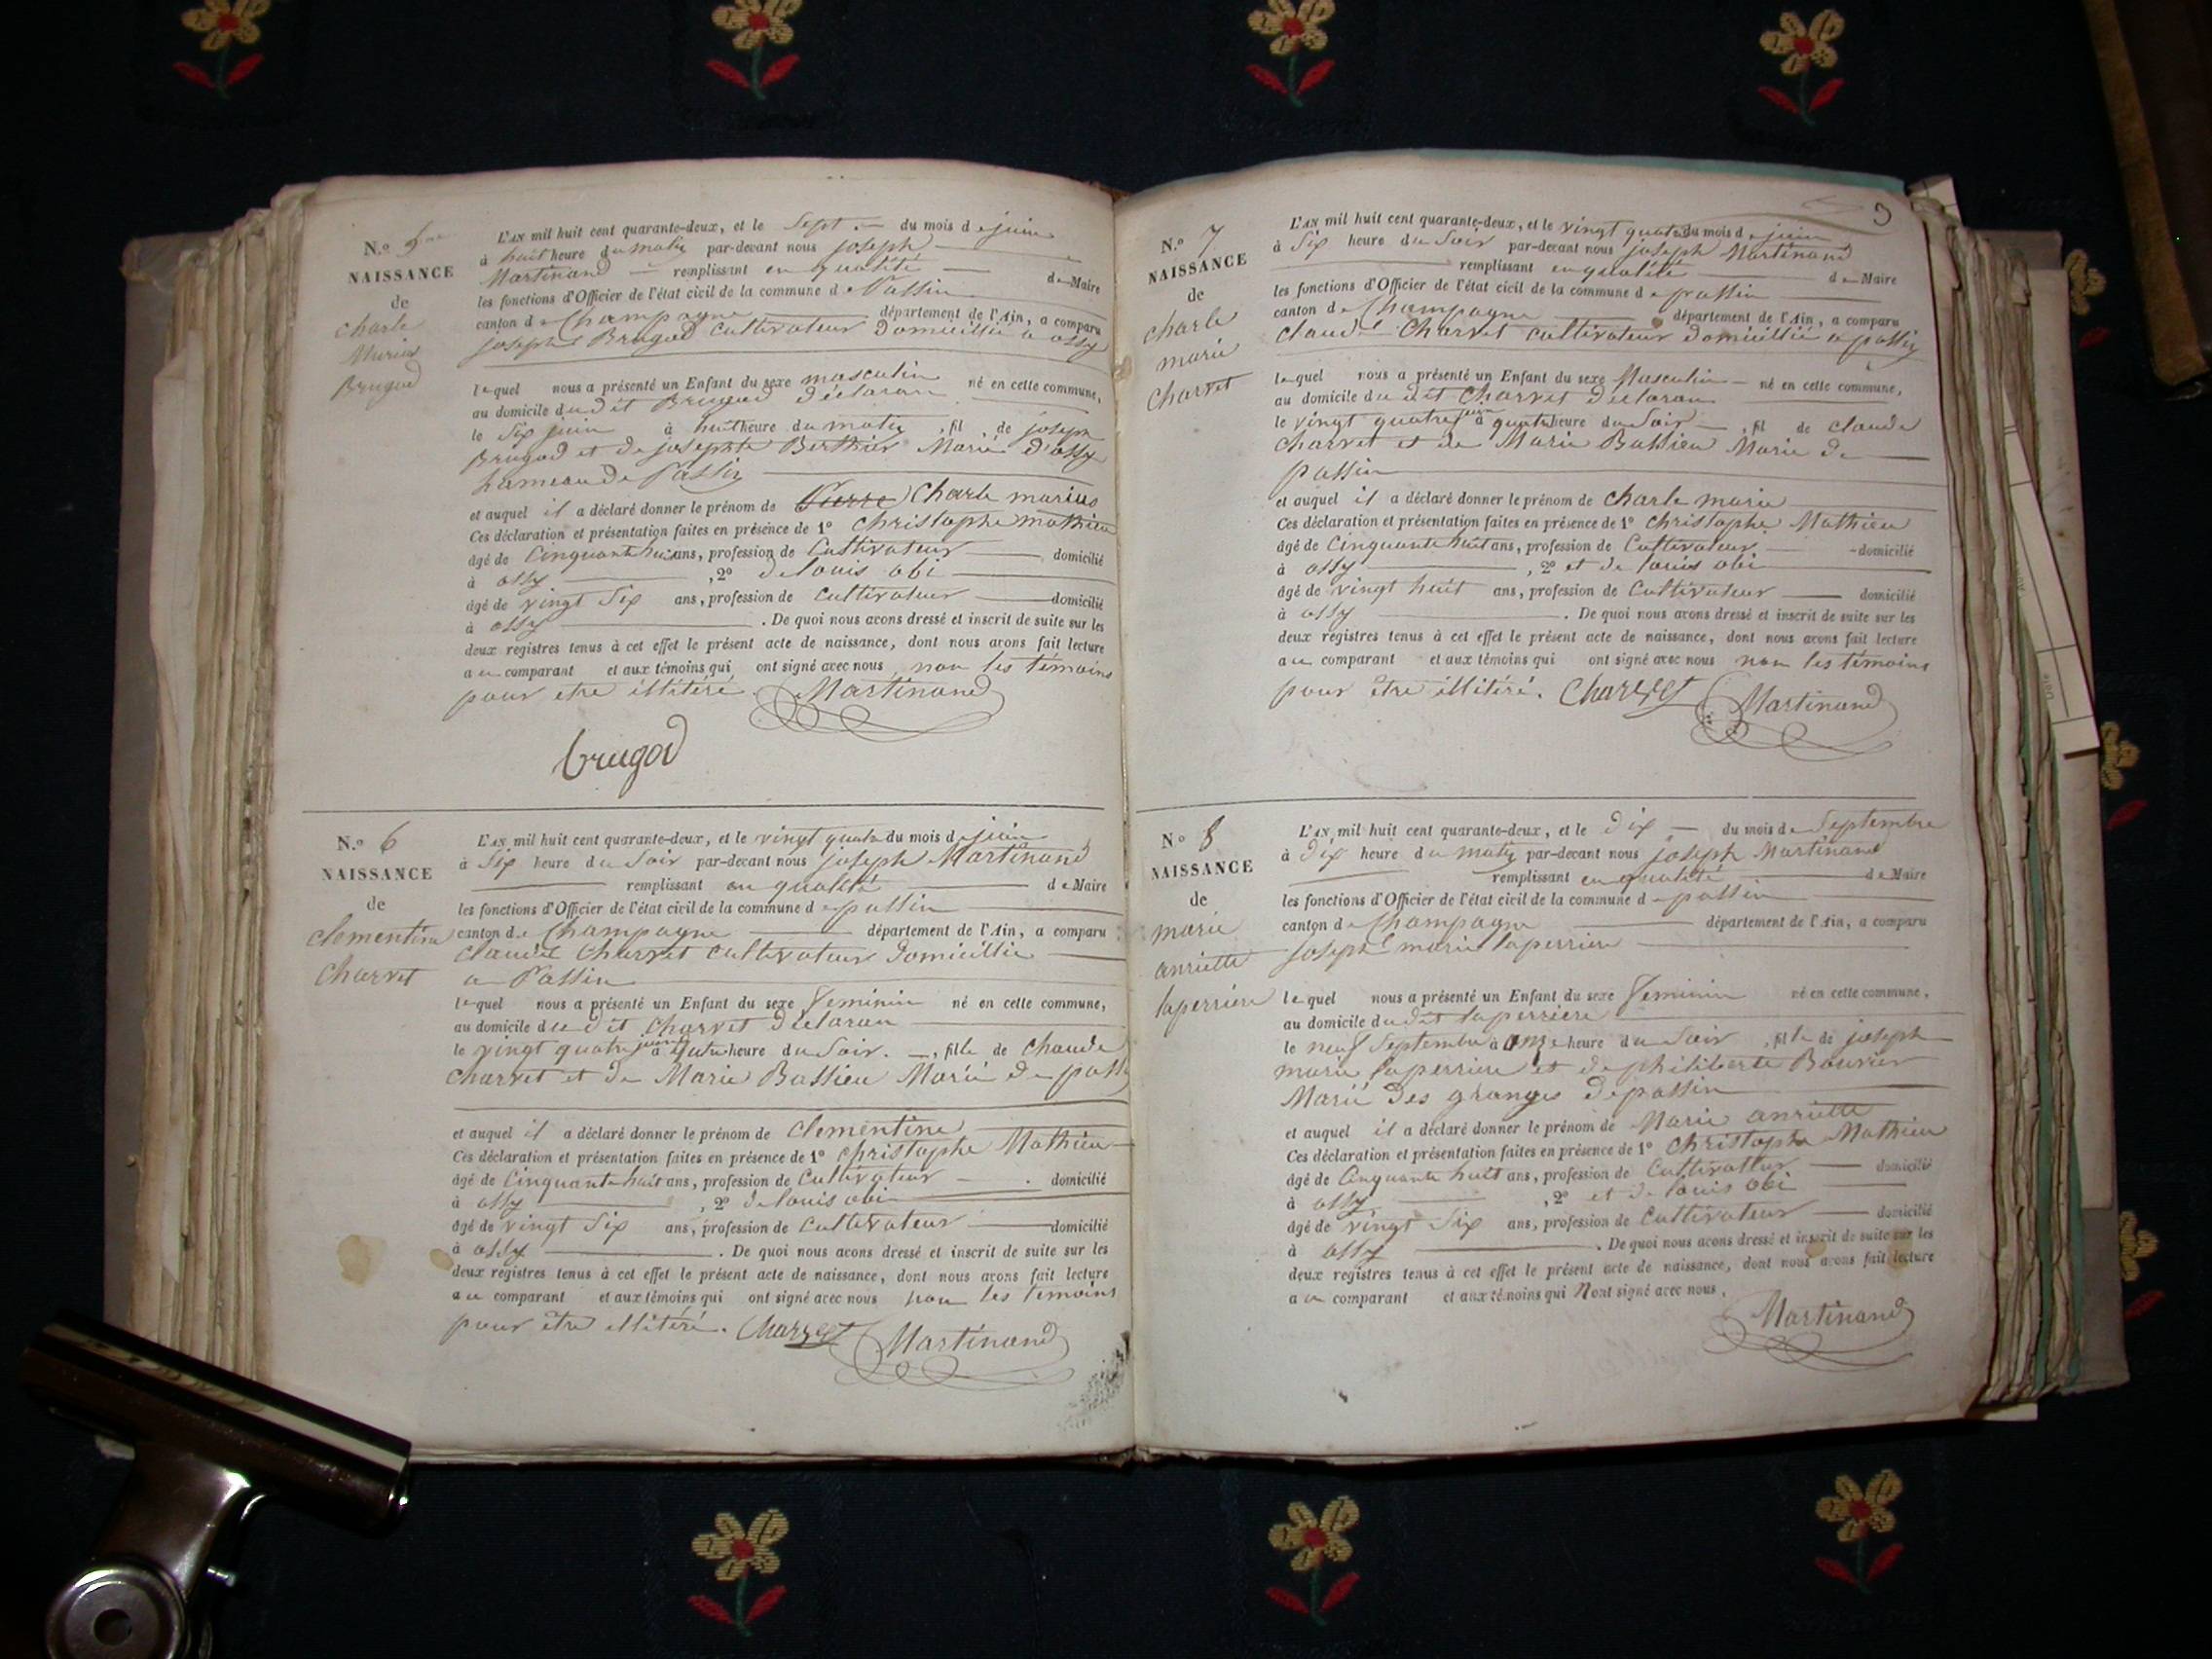 N.° 5
NAISSANCE
de
charle
Marius
Brugod
L'AN mil huit cent quarante-deux, et le Sept du mois de juin
à huit heure du matin par-devant nous joseph
Martinand remplissant en qualité de Maire
les fonctions d'Officier de l'état civil de la commune de Passin
canton de Champagne département de l'Ain, a comparu
joseph Brugod Cultivateur Domicillié a ossy
lequel nous a présenté un Enfant du sexe masculin né en cette commune,
au domicile du dit Brugod déclaran
le Six juin à huit heure du matin, fil de joseph
Brugod et de josephte Berthier Marié d'ossy
hameau de Passin
et auquel il a déclaré donner le prénom de Pierre Charle marius
Ces déclaration et présentation faites en présence de 1° Christophe mathieu
âgé de Cinquante huit ans, profession de Cultivateur domicilié
à ossy, 2° de louis obi
âgé de vingt Six ans, profession de Cultivateur domicilié
à ossy. De quoi nous avons dressé et inscrit de suite sur les
deux registres tenus à cet effet le présent acte de naissance, dont nous avons fait lecture
au comparant et aux témoins qui ont signé avec nous non les témoins
pour etre illitéré. Martinand
brugod
N.° 6
NAISSANCE
de
clementine
charvet
L'AN mil huit cent quarante-deux, et le vingt quatre du mois de juin
à Six heure du Soir par-devant nous joseph Martinand
remplissant en qualité de Maire
les fonctions d'Officier de l'état civil de la commune de passin
canton de Champagne département de l'Ain, a comparu
claude Charvet cultivateur Domicillié
a Passin
lequel nous a présenté un Enfant du sexe Feminin né en cette commune,
au domicile du dit Charvet déclaran
le vingt quatre juin à quatre heure du Soir., fille de Claude
Charvet et de Marie Bassieu Marié de
et auquel il a déclaré donner le prénom de clementine
Ces déclaration et présentation faites en présence de 1° christophe Mathieu
âgé de Cinquante huit ans, profession de Cultivateur domicilié
à ossy, 2° de louis obi
âgé de vingt Six ans, profession de Cultivateur domicilié
à ossy. De quoi nous avons dressé et inscrit de suite sur les
deux registres tenus à cet effet le présent acte de naissance, dont nous avons fait lecture
au comparant et aux témoins qui ont signé avec nous non les témoins
pour être illitéré. Charvet Martinand
3
N.° 7
NAISSANCE
de
charle
marie
charvet
L'AN mil huit cent quarante-deux, et le vingt quatre du mois de juin
à Six heure du Soir par-devant nous joseph Martinand
remplissant en qualité de Maire
les fonctions d'Officier de l'état civil de la commune de passin
canton de Champagne département de l'Ain, a comparu
Claude Charvet cultivateur domicillié a passin
lequel nous a présenté un Enfant du sexe Masculin né en cette commune,
au domicile du dit Charvet déclaran
le vingt quatre juin à quatre heure du Soir, fil de claude
charvet et de Marie Bassieu Marié de
passin
et auquel il a déclaré donner le prénom de charle marie
Ces déclaration et présentation faites en présence de 1° christophe Mathieu
âgé de Cinquante huit ans, profession de Cultivateur domicilié
à ossy, 2° et de louis obi
âgé de vingt huit ans, profession de Cultivateur domicilié
à ossy. De quoi nous avons dressé et inscrit de suite sur les
deux registres tenus à cet effet le présent acte de naissance, dont nous avons fait lecture
au comparant et aux témoins qui ont signé avec nous non les témoins
pour être illitéré. Charvet Martinand
N° 8
NAISSANCE
de
marie
anriette
laperriere
L'AN mil huit cent quarante-deux, et le dix du mois de Septembre
à dix heure du matin par-devant nous joseph Martinand
remplissant en qualité de Maire
les fonctions d'Officier de l'état civil de la commune de passin
canton de Champagne département de l'Ain, a comparu
joseph marie laperriere
lequel nous a présenté un Enfant du sexe Feminin né en cette commune,
au domicile du dit laperriere
le neuf Septembre à onze heure du Soir, fille de joseph
marie laperriere et de philiberte Bouvier
Marié des granges de passin
et auquel il a déclaré donner le prénom de Marie anriette
Ces déclaration et présentation faites en présence de 1° Christophe Mathieu
âgé de Cinquante huit ans, profession de Cultivateur domicilié
à ossy, 2° et de louis obi
âgé de vingt Six ans, profession de Cultivateur domicilié
à ossy. De quoi nous avons dressé et inscrit de suite sur les
deux registres tenus à cet effet le présent acte de naissance, dont nous avons fait lecture
au comparant et aux témoins qui Nont signé avec nous.
Martinand